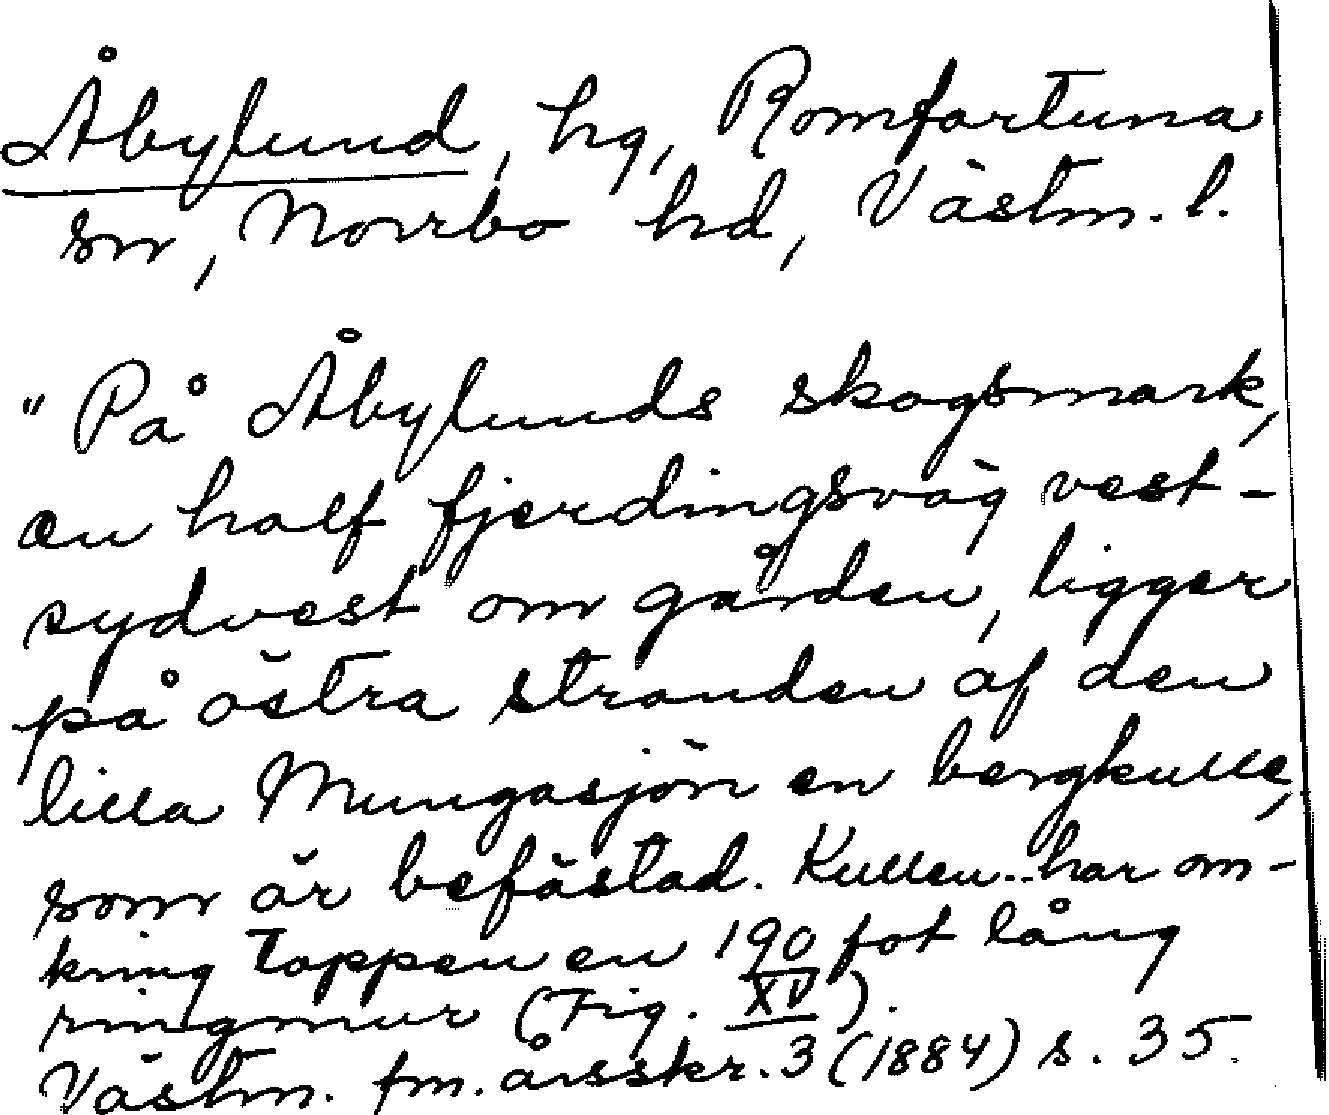 Åbylund, hg, Romfartuna
sn, Norrbo hd, Västm. l.
"På Åbylunds skogsmark,
en half fjerdingsväg vest-
sydvest om gården, ligger
på östra stranden af den
lilla Mungasjön en bergkulle,
som är befästad. Kullen.. har om-
kring toppen en 190 fot lång
ringmur (Fig. XV).
Västm. fm. årsskr. 3 (1884) s. 35.